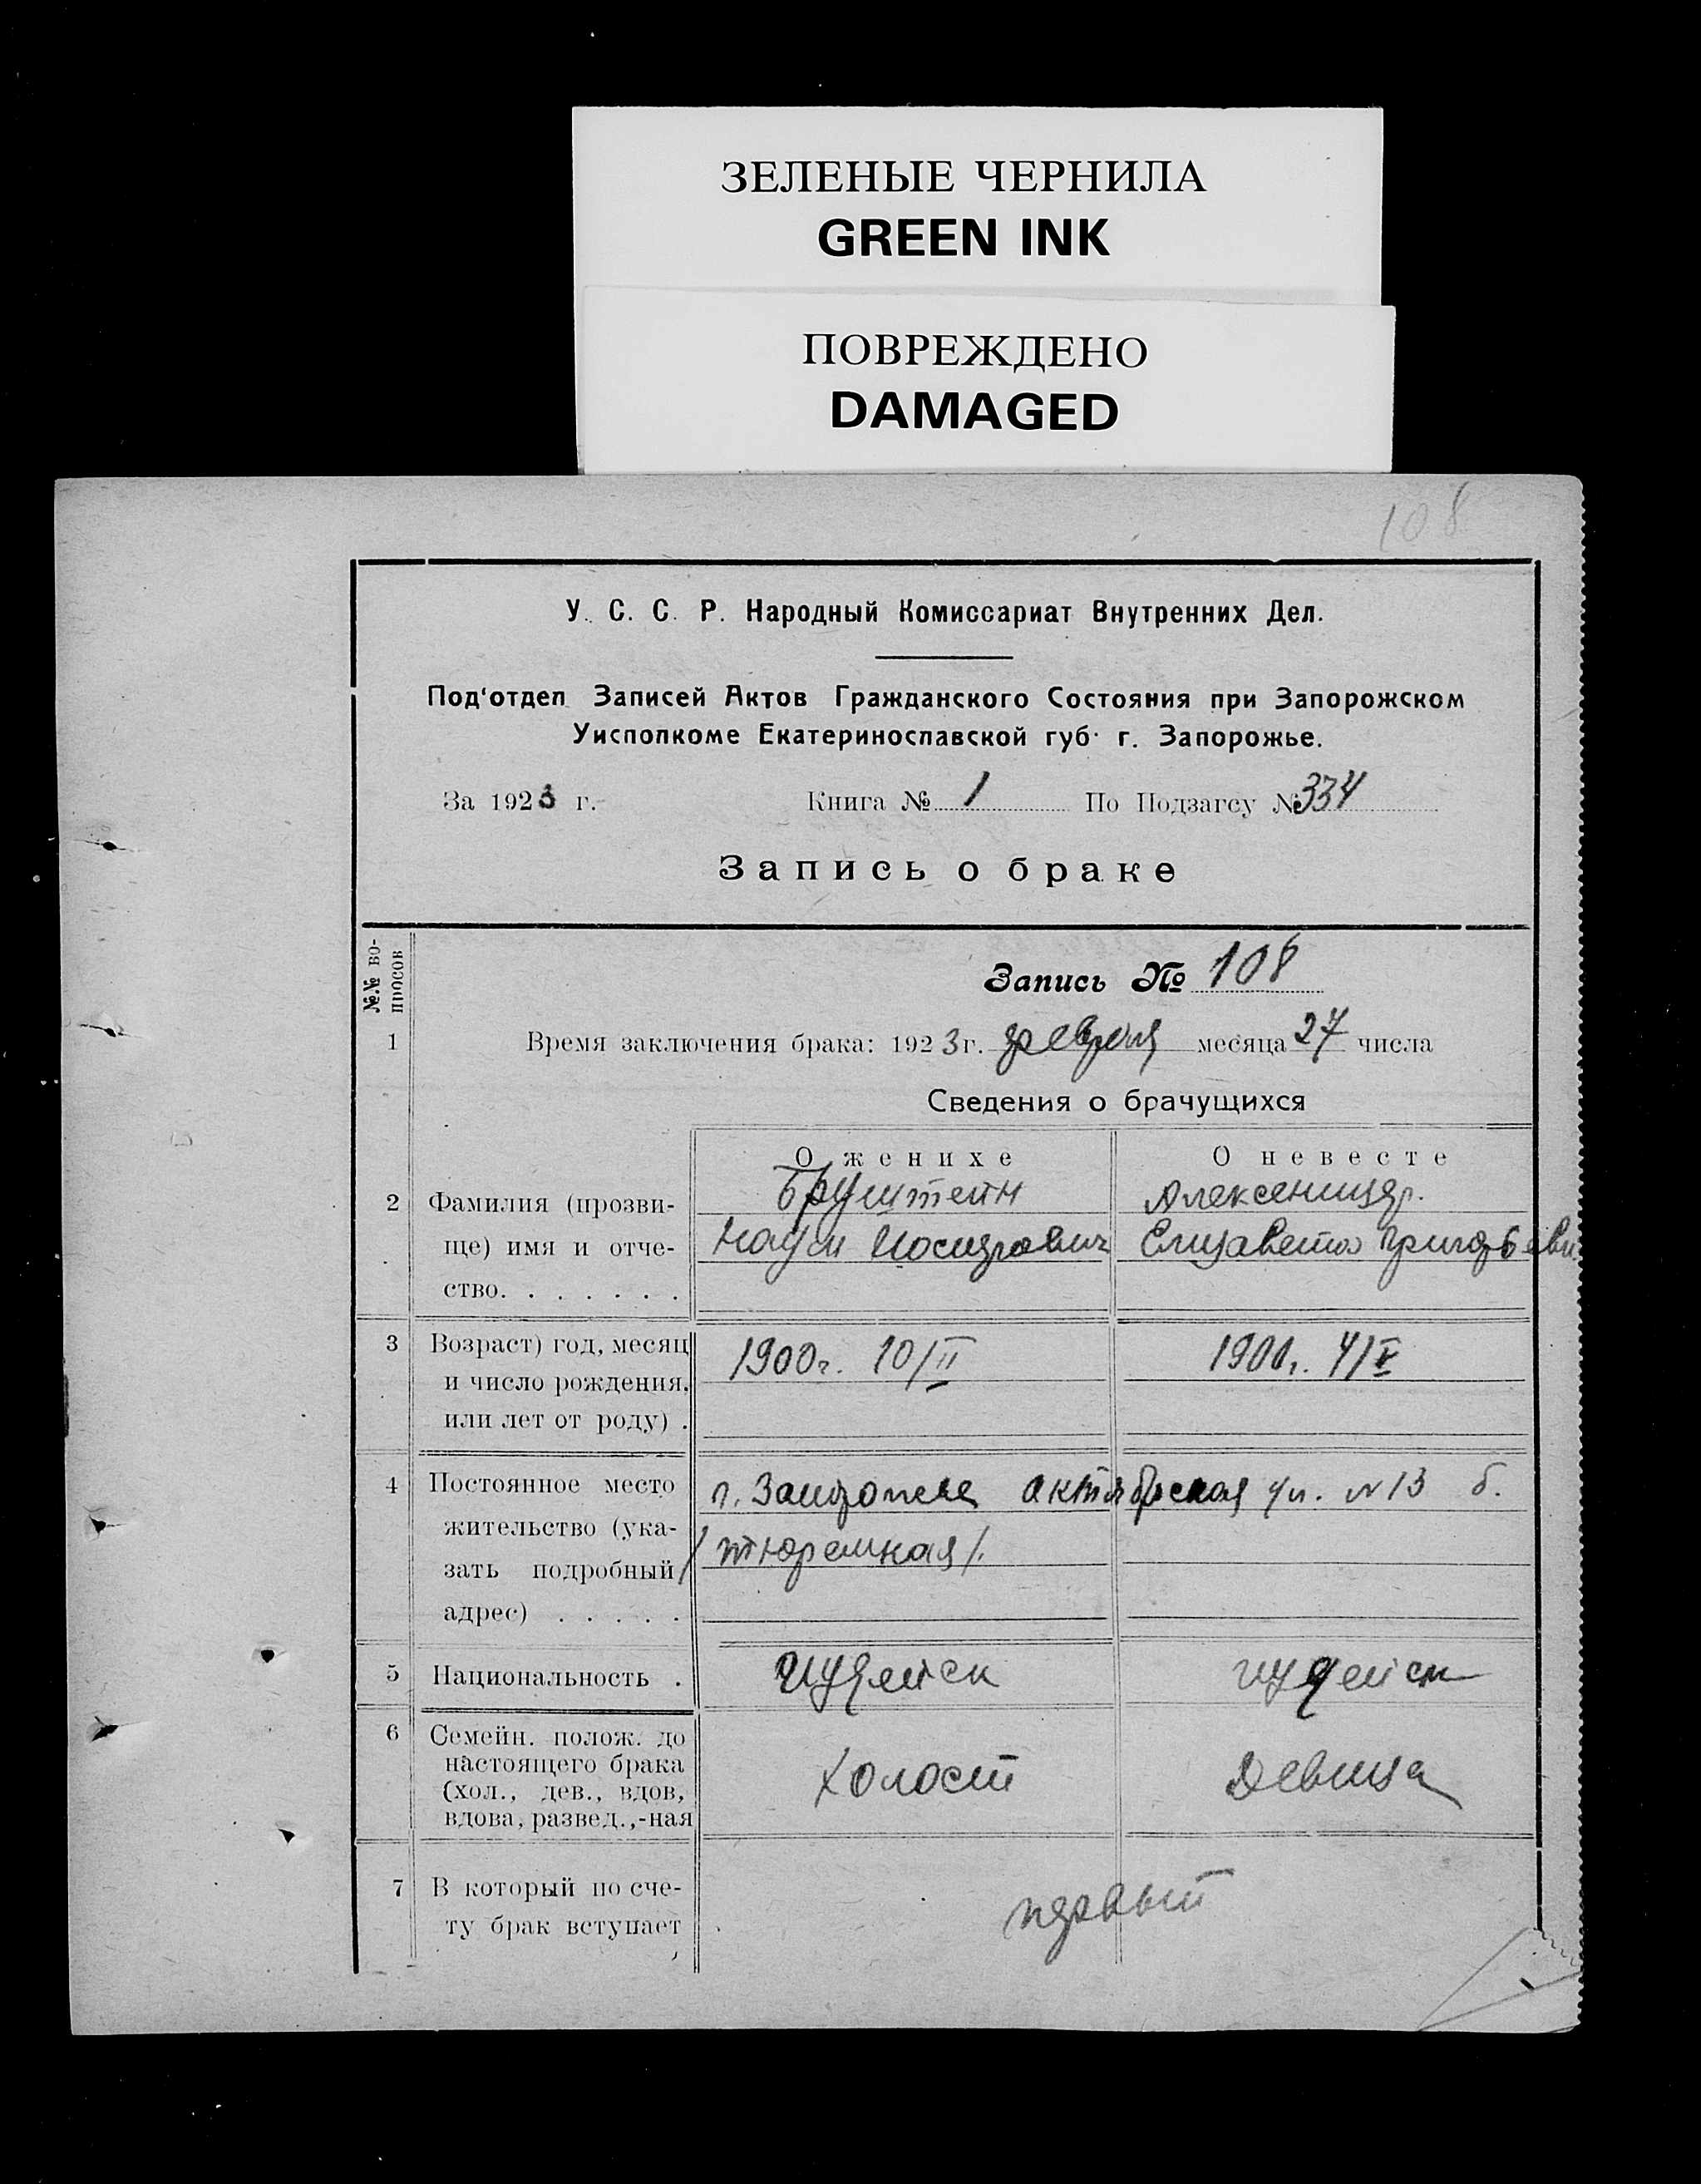 ЗЕЛЕНЫЕ ЧЕРНИЛА
GREEN INK
ПОВРЕЖДЕНО
DAMAGED
108
У. С. С. Р. Народный Комиссариат Внутренних Дел.
Под'отдел Записей Актов Гражданского Состояния при Запорожском
Уисполкоме Екатеринославской губ. г. Запорожье.
За 1923 г. Книга № 1 По Подзагсу № 334
Запись о браке
№№ вопросов
Запись № 108
1 Время заключения брака: 1923 г. февраля месяца 27 числа
Сведения о брачущихся
О женихе О невесте
2 Фамилия (прозви- Бруштейн
ще) имя и отче- Наум Иосифович Елизавета Григорьевн
ство. . . . . . .
3 Возраст) год, месяц 1900г. 10/II 1900г. 4/V
и число рождения,
или лет от роду) .
4 Постоянное место г. Запорожье Октябрьская ул. № 13 б.
жительство (ука- /тюремная/.
зать подробный
адрес) . . . . .
5 Национальность . иудейск иудейск
6 Семейн. полож. до
настоящего брака
(хол., дев., вдов, холост девица
вдова, развед.,-ная
7 В который по сче- первый
ту брак вступает